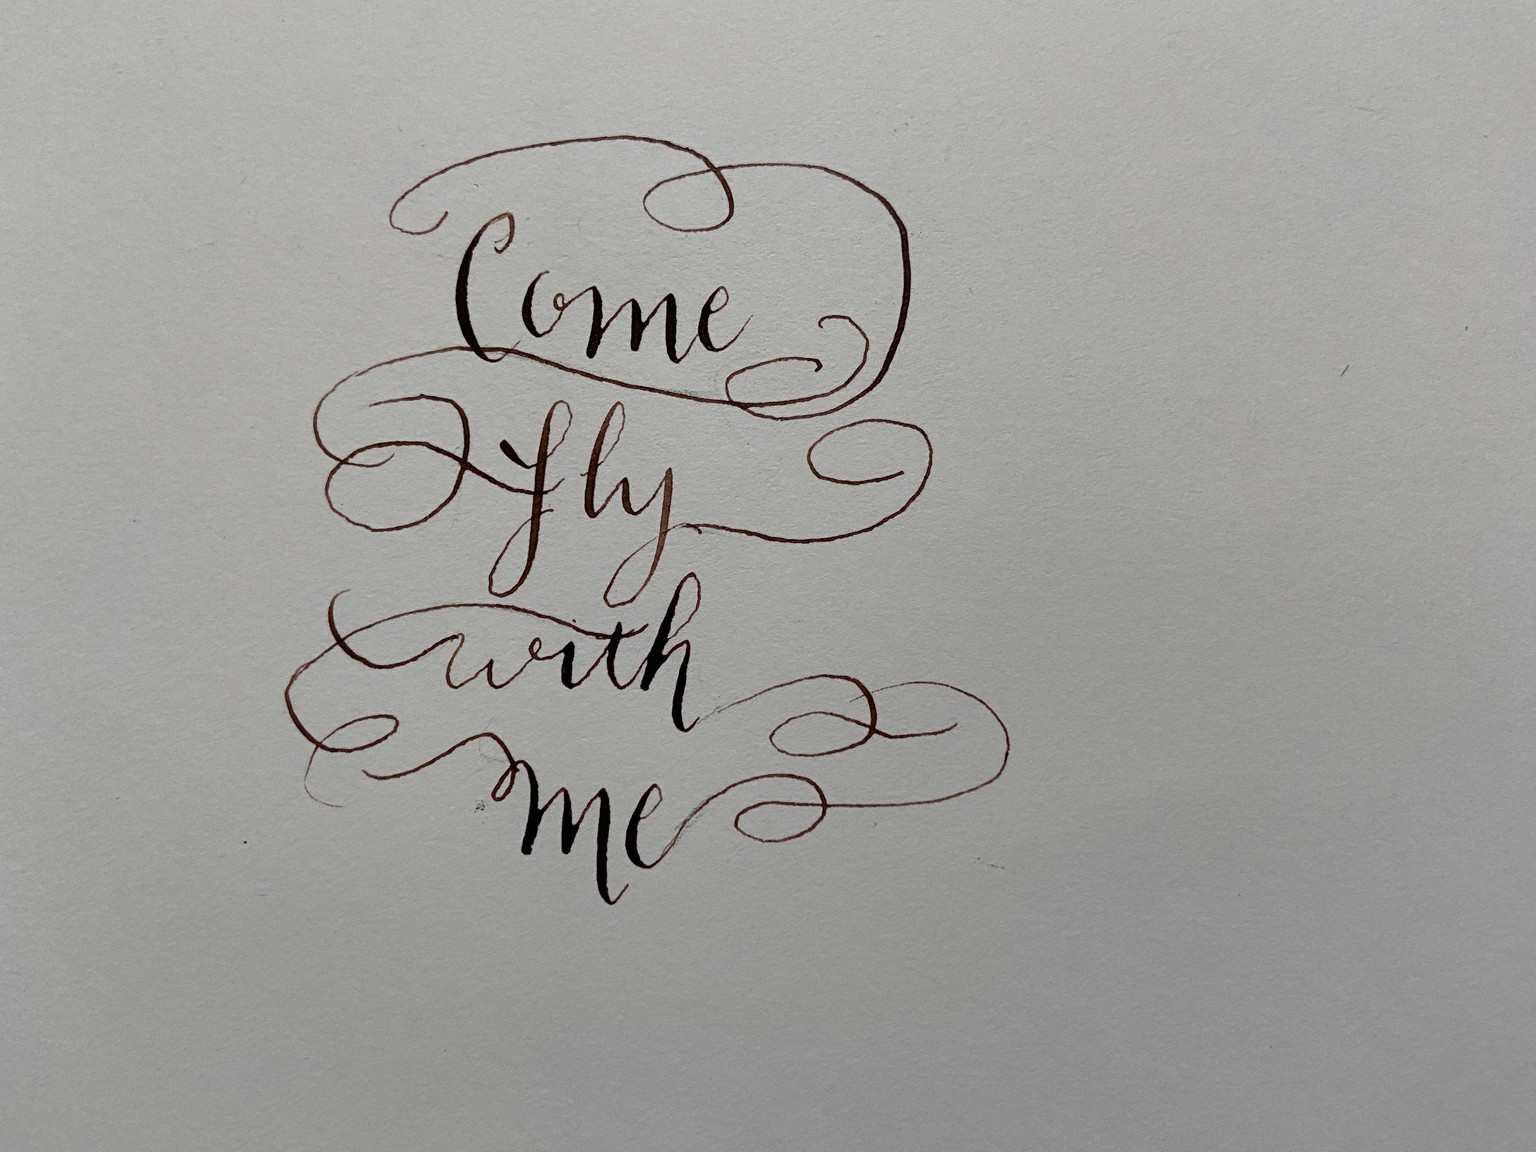 Come
fly
with
me